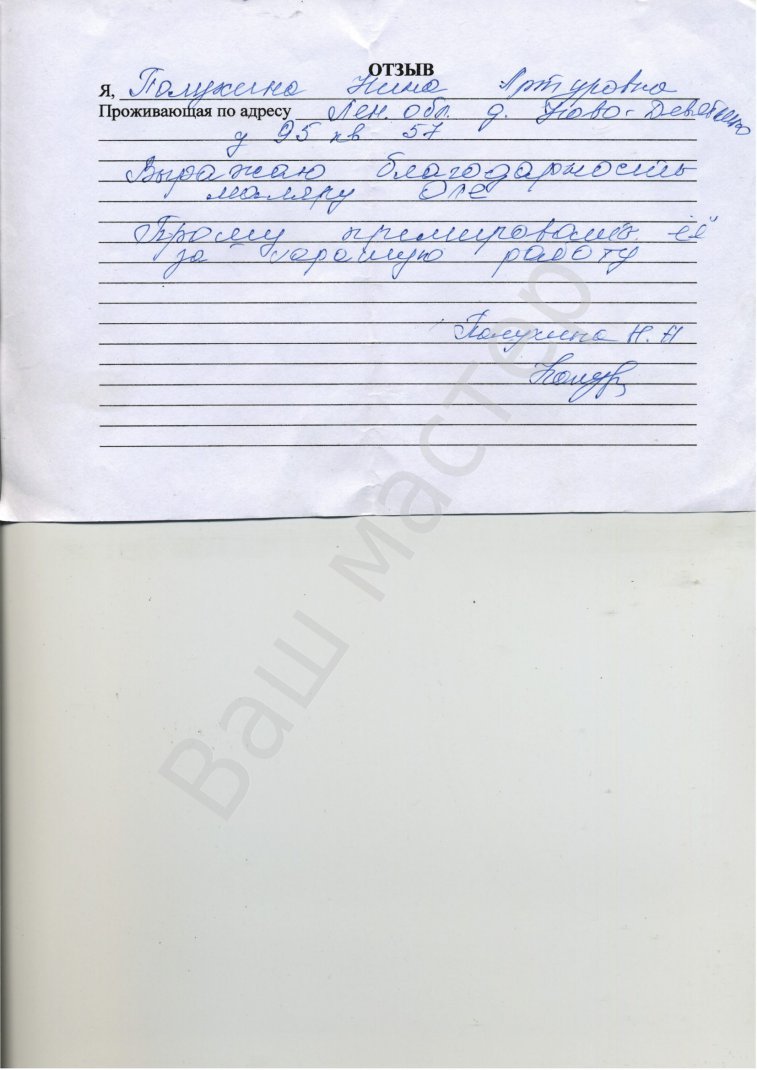 ОТЗЫВ
Я, Полухина Нина Артуровна
Проживающая по адресу Лен. обл. д. Ново-Девяткино
д 95 кв 57
Выражаю благодарность
маляру Оле
Прошу премировать её
за хорошую работу
Полухина Н. А
Ваш мастер